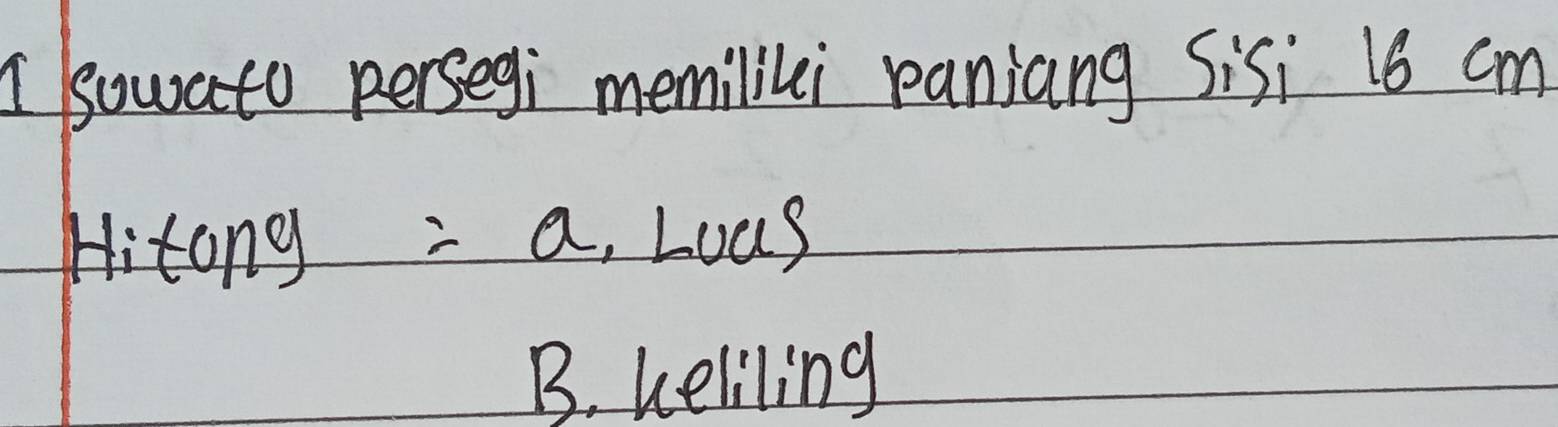 1 suwatu persegi memiliki panjang Sisi 16 cm
Hitung = a. Luas
B. keliling